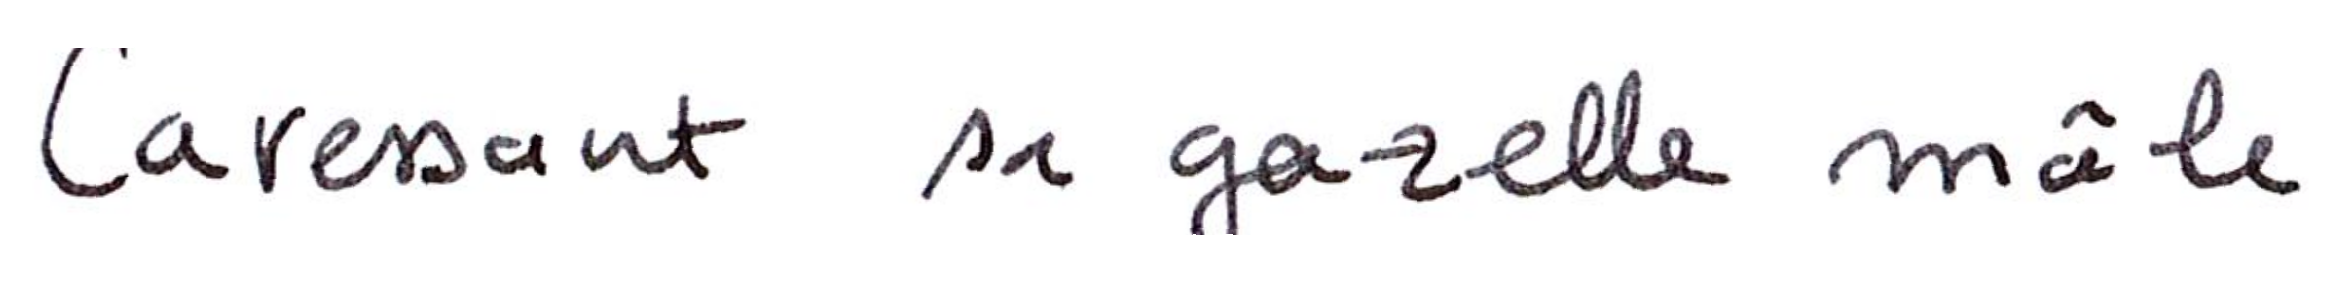 Caressant sa gazelle mâle